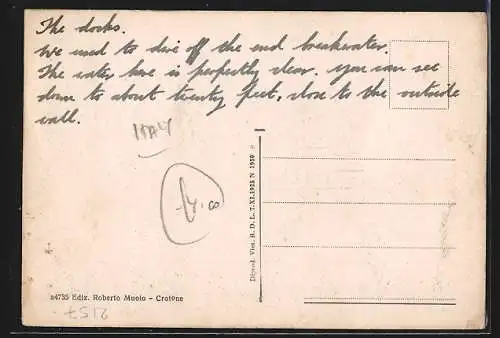 The docks.
We used to dive off the end breakwater.
The water here is perfectly clear. you can see
down to about twenty feet, close to the outside
wall.
ITALY
Dépend. Vien. R. D. L. 7.XI.1925 N 1950
24735 Ediz. Roberto Muolo - Crotone
2157